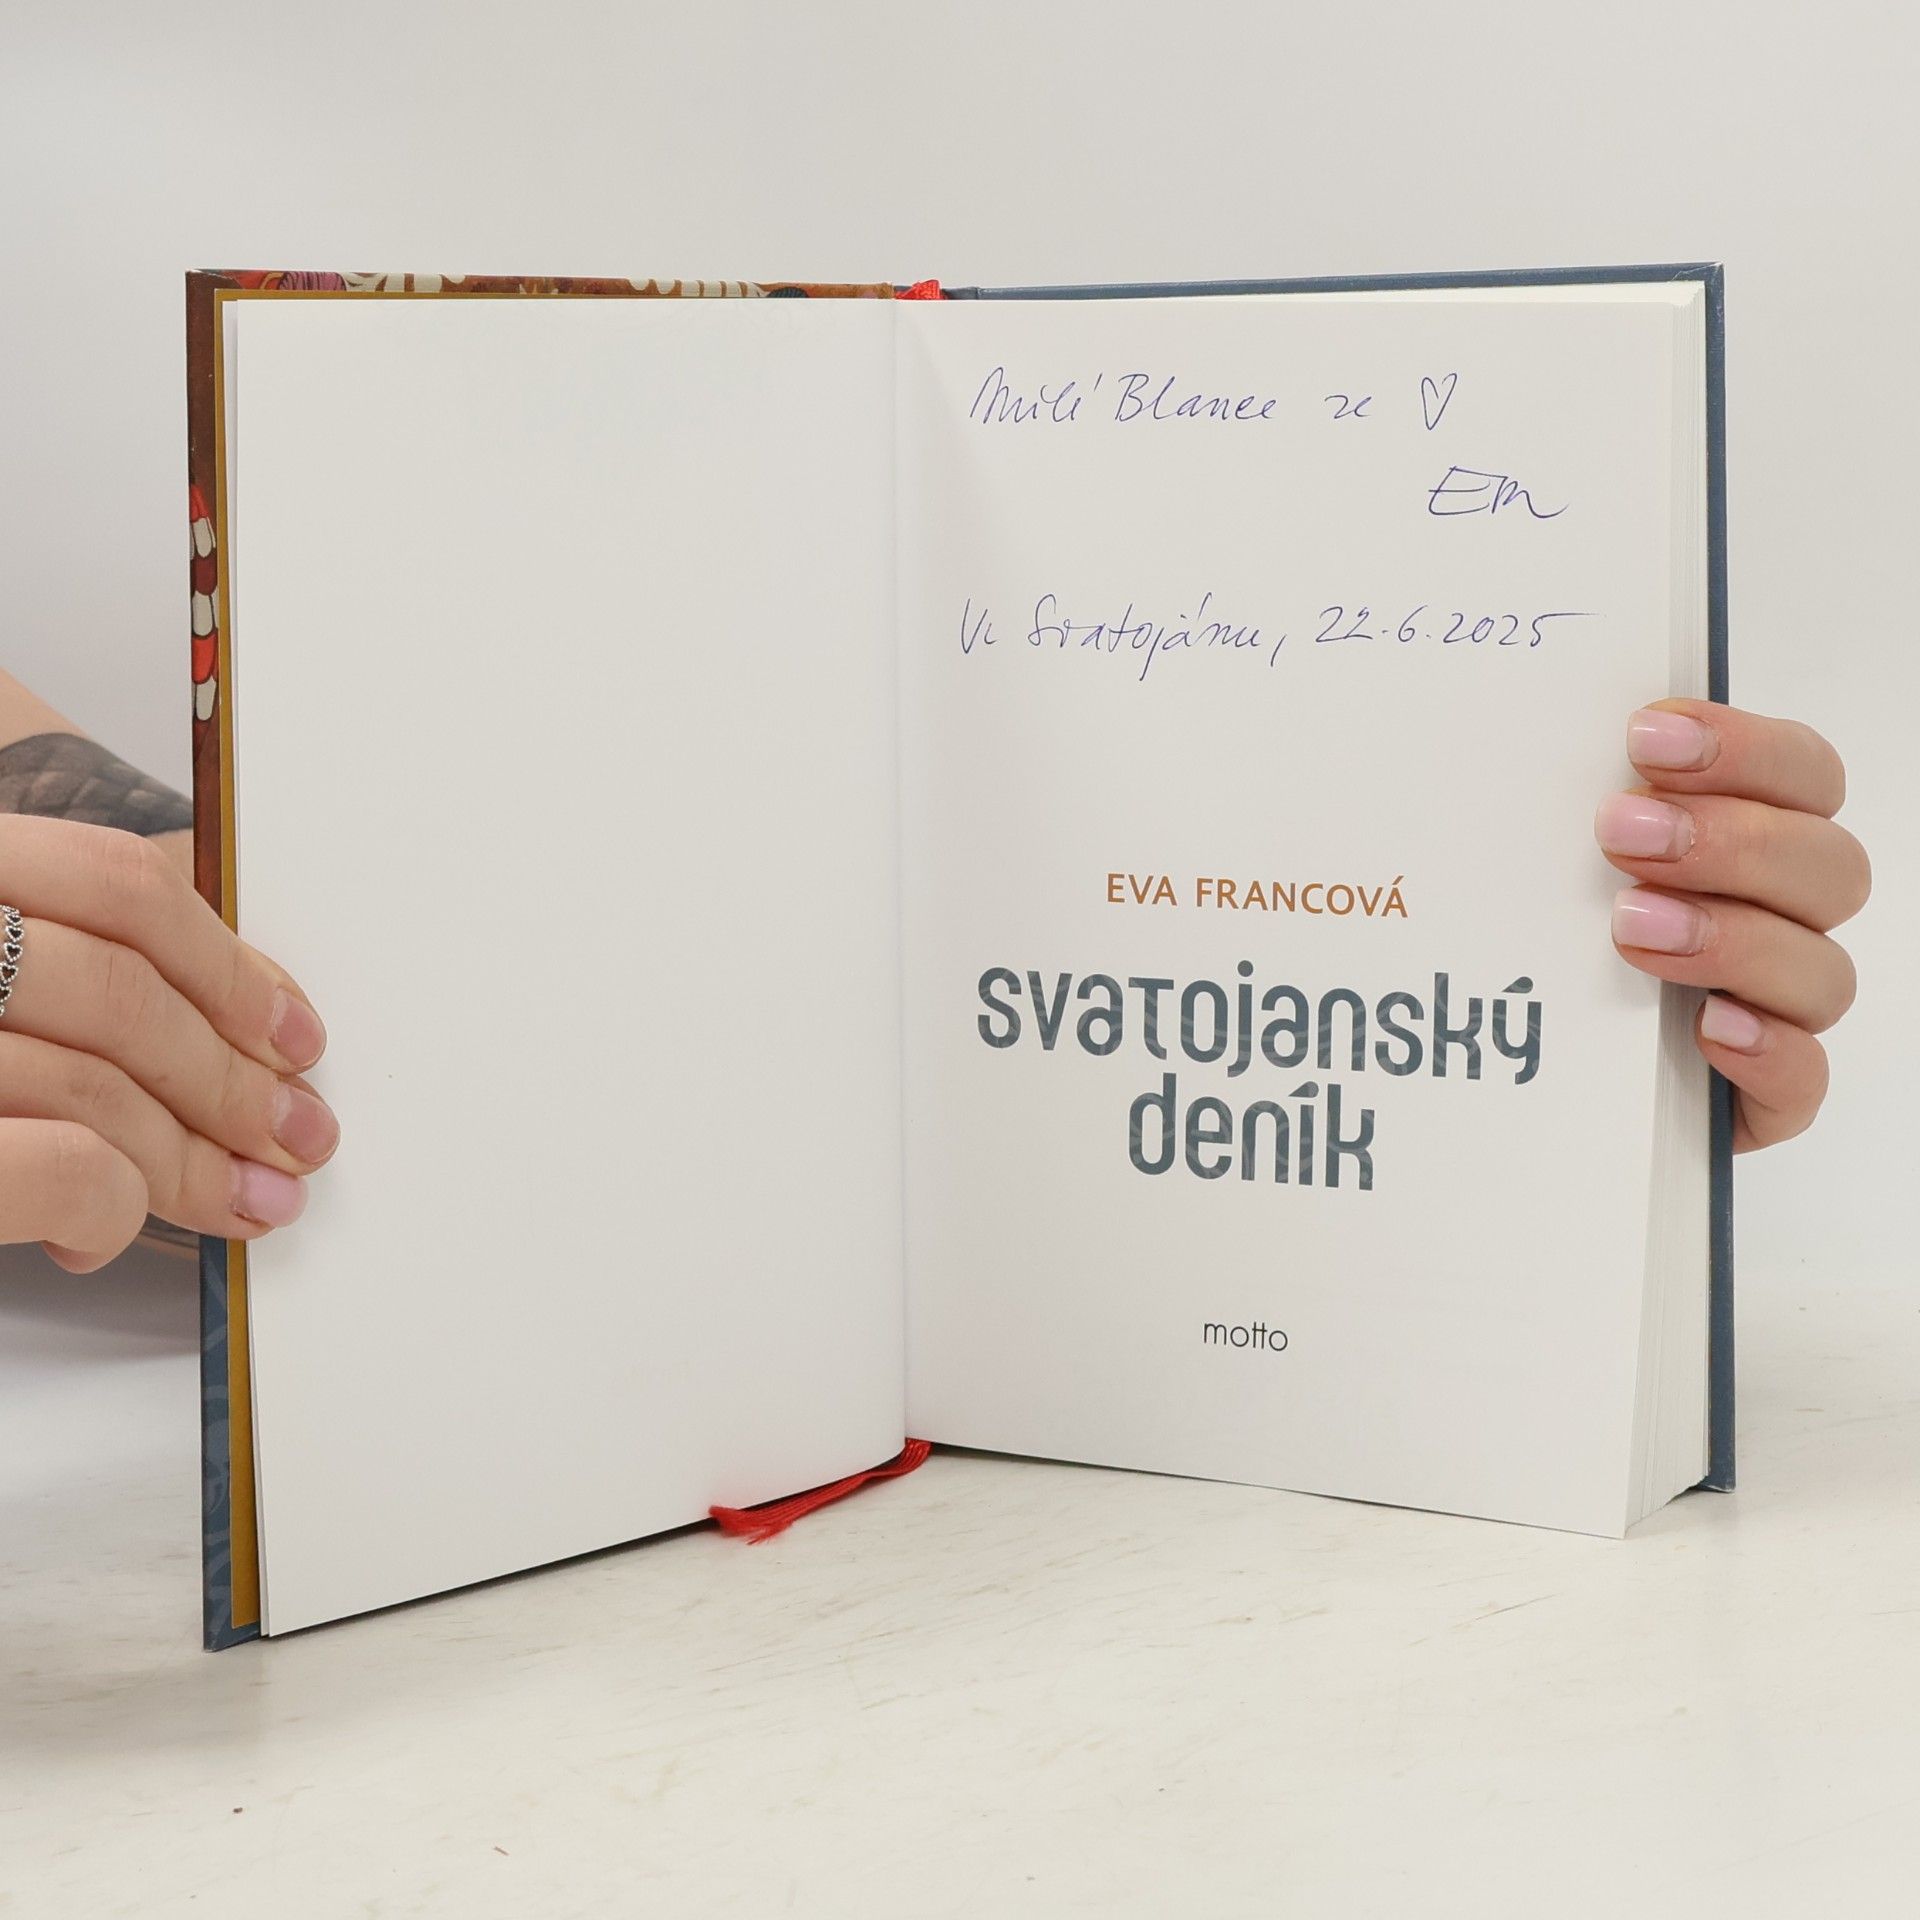 Milé Blance ze ♡
Eva
Ve Svatojánu, 22.6.2025
EVA FRANCOVÁ
svatojanský
deník
motto